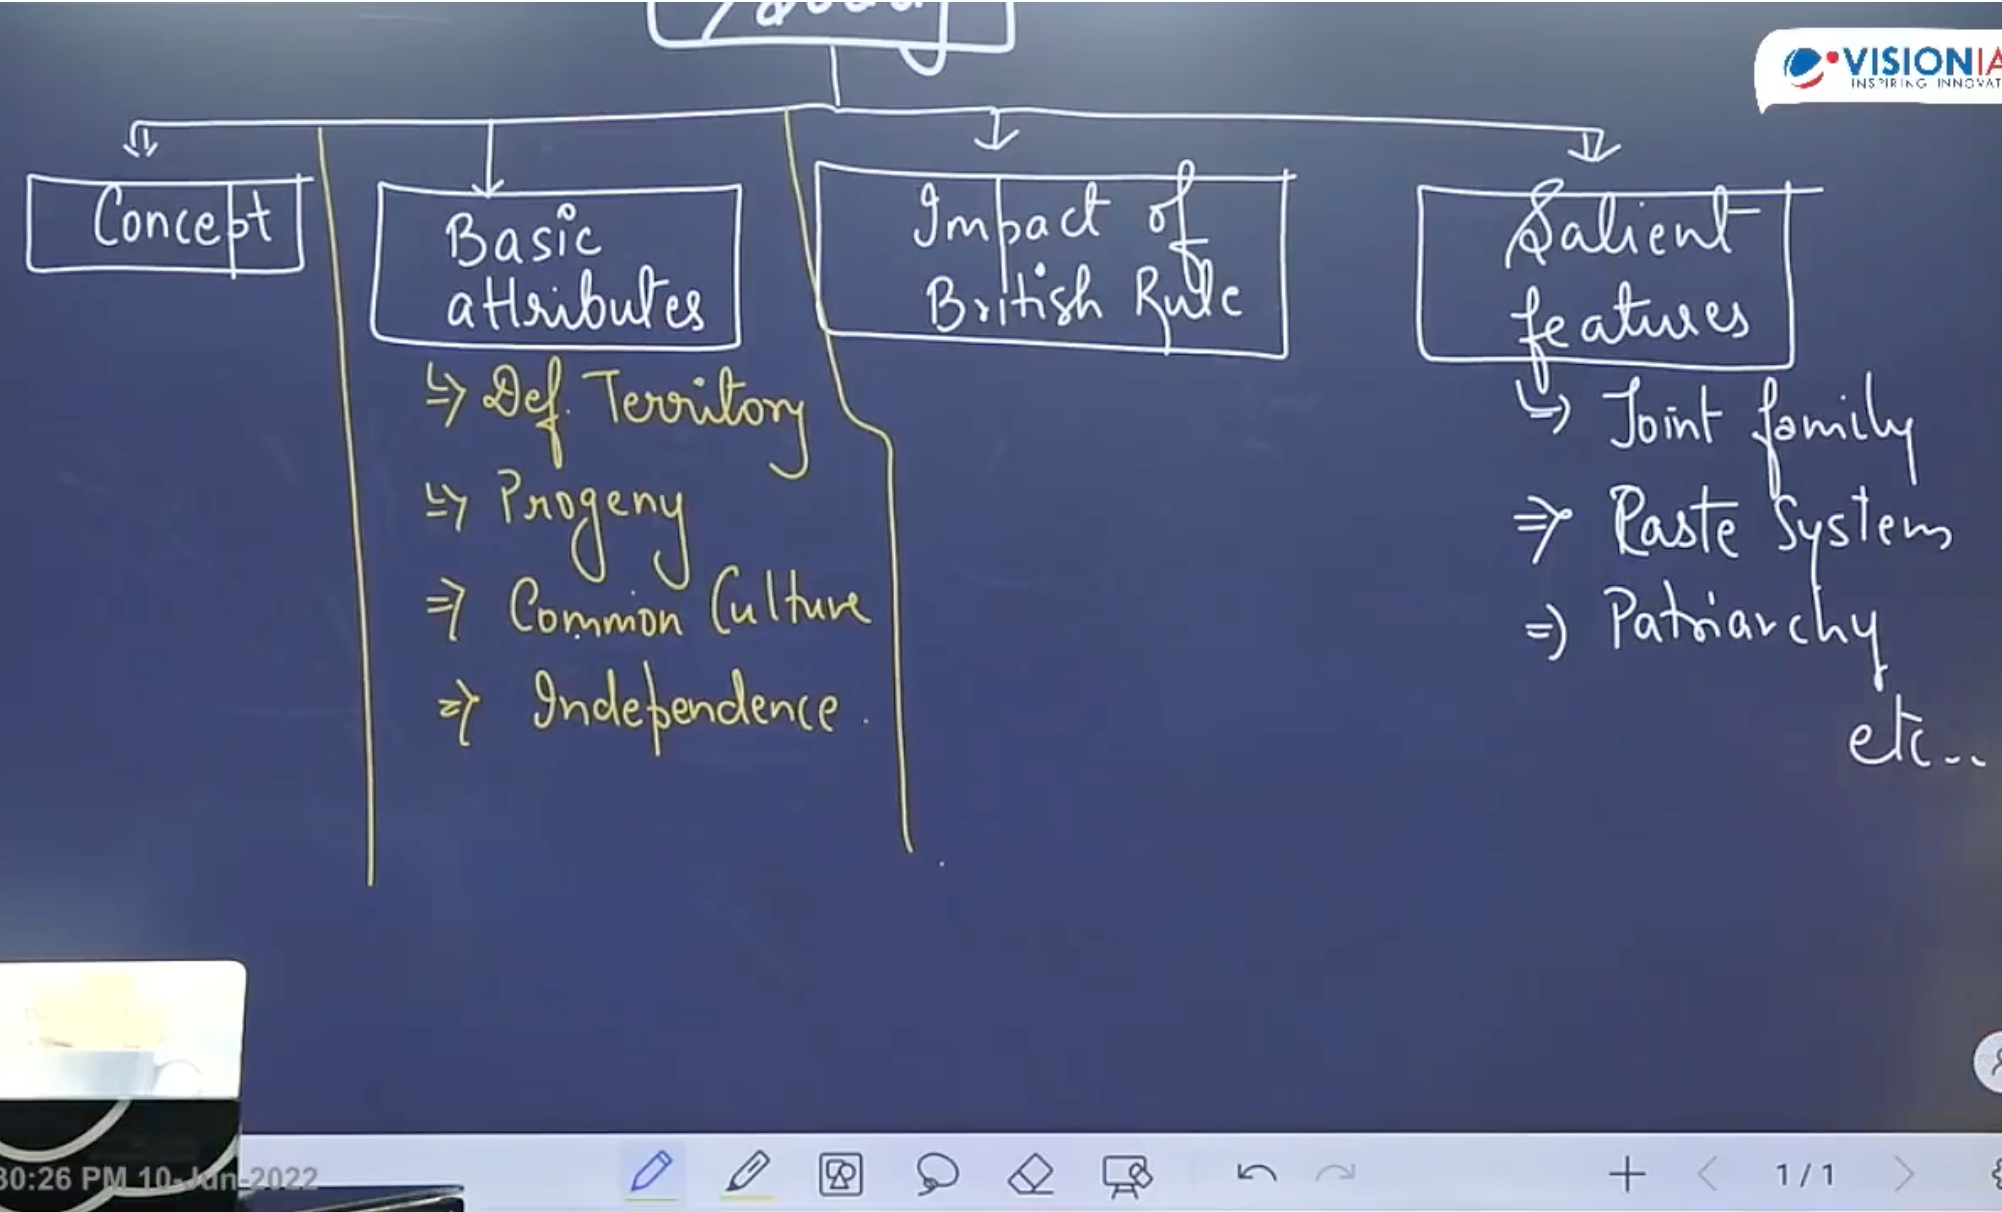 VISIONIA
INSPIRING INNOVAT
Concept
Basic
attributes
↳ Def. Territory
↳ Progeny
⇒ Common Culture
⇒ Independence.
Impact of
British Rule
Salient
features
↳ Joint family
⇒ Caste System
⇒ Patriarchy
etc...
30:26 PM 10-Jun-2022
1/1